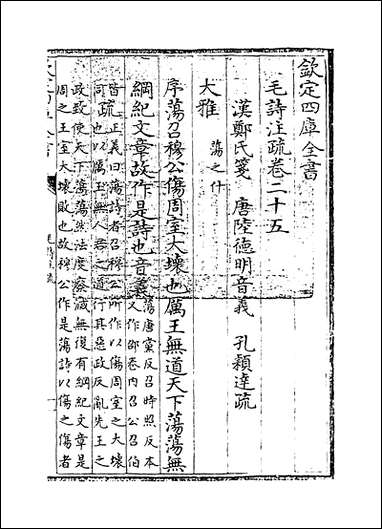 欽定四庫全書
毛詩注疏卷二十五
漢鄭氏箋　唐陸德明音義　孔穎達疏
大雅　蕩之什
序蕩召穆公傷周室大壞也厲王無道天下蕩蕩無
綱紀文章故作是詩也音義
蕩唐黨反召時照反本
又作邵卷内召公召伯
皆同
疏
正義曰蕩詩者召穆公所作以傷周室之大壞
也以厲王無人君之道行其惡政反亂先王之
政致使天下蕩蕩然法度廢滅無復有綱紀文章是
周之王室大壞敗也故穆公作是蕩詩以傷之傷者